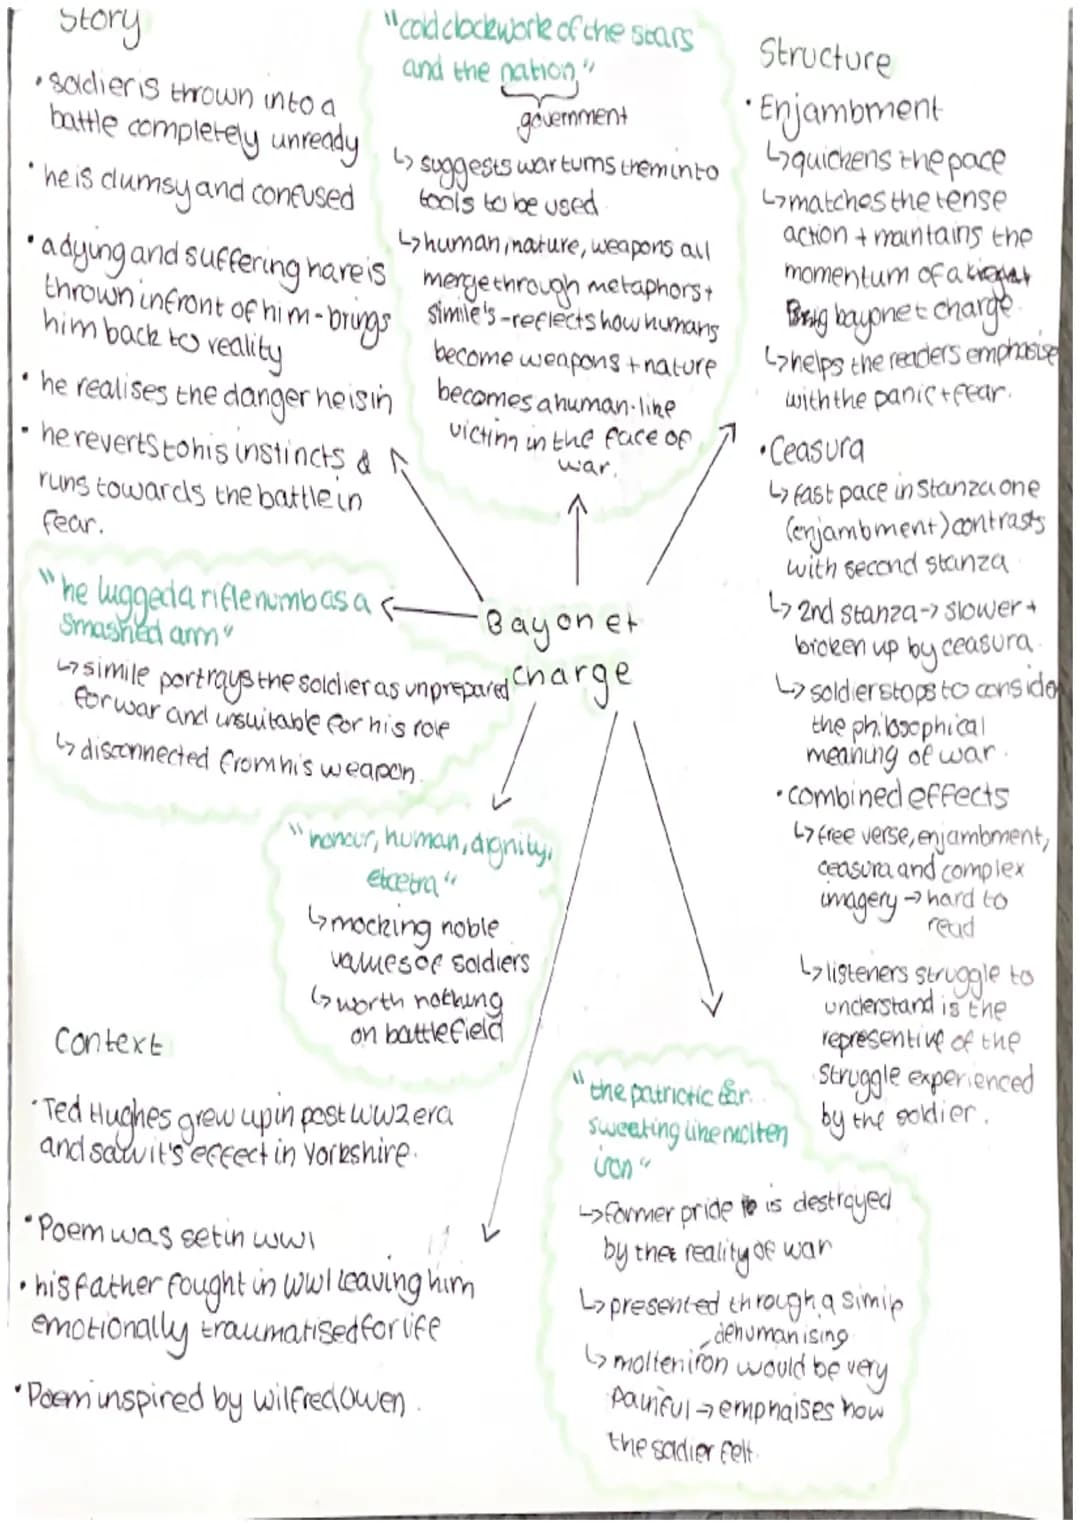 Story
• soldier is thrown into a
battle completely unready
• he is clumsy and confused
• a dying and suffering hare is
thrown infront of him - brings
him back to reality
• he realises the danger he is in
• he reverts to his instincts &
runs towards the battle in
fear.
"cold clockwork of the stars
and the nation"
government
↳ suggests war turns them into
tools to be used
↳ human, nature, weapons all
merge through metaphors +
simile's - reflects how humans
become weapons + nature
becomes a human-like
victim in the face of
war.
Structure
• Enjambment
↳ quickens the pace
↳ matches the tense
action + maintains the
momentum of a
bayonet charge.
↳ helps the readers emphasise
with the panic + fear.
• Ceasura
↳ fast pace in Stanza one
(enjambment) contrasts
with second stanza
↳ 2nd stanza -> slower +
broken up by ceasura.
↳ soldier stops to conside
the philosophical
meaning of war.
• combined effects
↳ free verse, enjambment,
ceasura and complex
imagery → hard to
read
↳ listeners struggle to
understand is the
representive of the
struggle experienced
by the soldier.
"he lugged a rifle numb as a
smashed arm"
↳ simile portrays the soldier as unprepared
for war and unsuitable for his role
↳ disconnected from his weapon.
Bayonet
charge
"honour, human, dignity,
etcetra"
↳ mocking noble
values of soldiers
↳ worth nothing
on battlefield
Context
• Ted Hughes grew up in post WW2 era
and saw it's effect in Yorkshire.
• Poem was set in WW1
• his father fought in WW1 leaving him
emotionally traumatised for life
• Poem inspired by Wilfred Owen.
"the patriotic ...
sweating like molten
iron"
↳ former pride is destroyed
by the reality of war
↳ presented through a simile
dehumanising
↳ molten iron would be very
painful → emphaises how
the soldier felt.